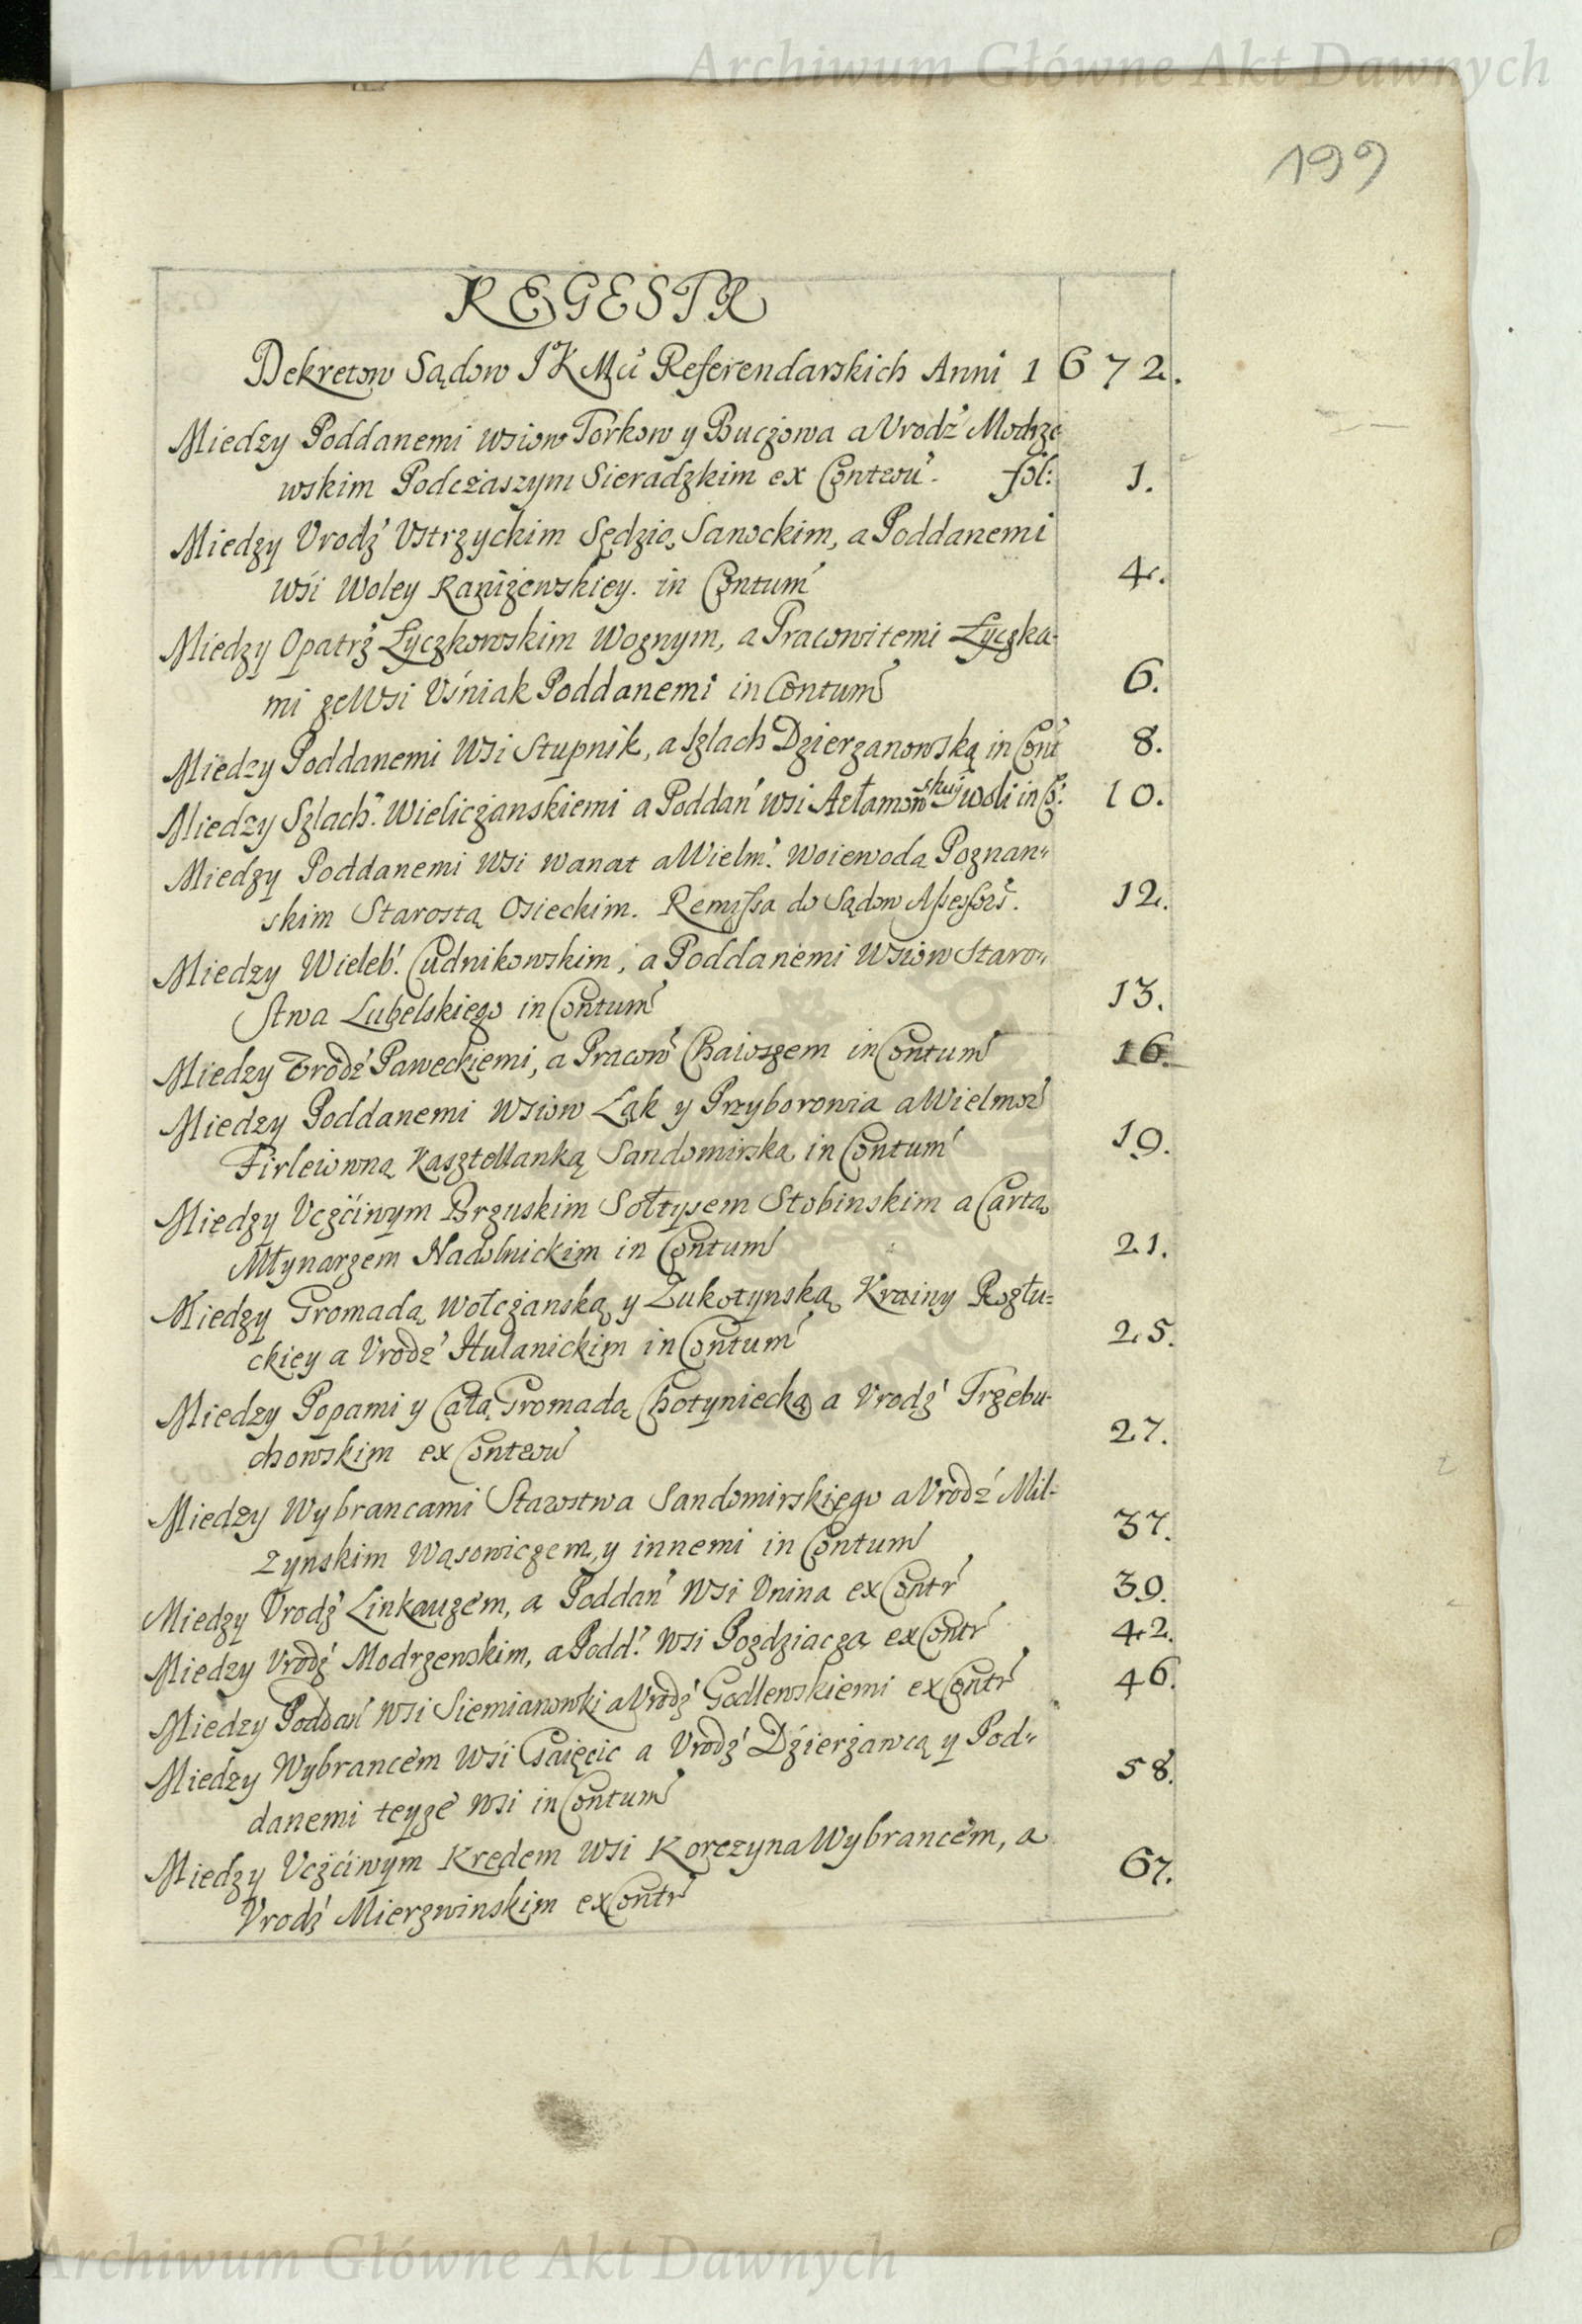 Archiwum Główne Akt Dawnych
199
REGESTR
Dekretow Sądow JKMci Referendarskich Anni 1672.
Miedzy Poddanemi wsiow Torkow y Buczowa a Vrodź Modrze
wskim Podczaszym Sieradzkim ex Controu. fol: 1.
Miedzy Vrodź Vstrzyckim Sędzią Sanockim, a Poddanemi
wśi Woley Raniżewskiey. in Contum 4.
Miedzy Opatrz Łyczkowskim Woznym, a Pracowitemi Łyczka-
mi ze Wsi Vśniak Poddanemi in Contum 6.
Miedzy Poddanemi Wsi Stupnik, a szlach Dzierzanowską in Cont 8.
Miedzy Szlach. Wieliczanskiemi a Poddań wsi Artamowskiij woli in Co: 10.
Miedzy Poddanemi Wsi Wanat a Wielm. Woiewodą Poznan-
skim Starostą Osieckim. Remissa do Sądow Assessors. 12.
Miedzy Wieleb. Cudnikowskim, a Poddanemi Wsiow Staro-
stwa Lubelskiego in Contum 13.
Miedzy Vrodź Paweckiemi, a Pracow Chaioszem in Contum 16.
Miedzy Poddanemi Wsiow Łąk y Przyborowia a Wielmoż
Firleiowną Kasztellanką Sandomirską in Contum 19.
Miedzy Vczćiwym Brzuskim Sołtysem Stobinskim a Cartą
Młynarzem Nadolnickim in Contum 21.
Miedzy Gromadą Wołczanską y Żukotynską Krainy Rozłu-
ckiey a Vrodź Hulanickim in Contum 25.
Miedzy Popami y Całą Gromadą Chotyniecką a Vrodź Trzebu-
chowskim ex Controu 27.
Miedzy Wybrancami Starostwa Sandomirskiego a Vrodź Mil-
żynskim Wąsowiczem, y innemi in Contum 37.
Miedzy Vrodź Linkauzem, a Poddań Wsi Vnina ex Contr 39.
Miedzy Vrodź Modrzewskim, a Podd. Wsi Pozdziacza ex Contr 42.
Miedzy Poddań Wsi Siemianowki a Vrodź Godlewskiemi ex Contr 46.
Miedzy Wybrancem Wśi Gaięcic a Vrodź Dźierżawcą y Pod-
danemi teyże Wsi in Contum 58.
Miedzy Vczćiwym Kredem Wsi Korczyna Wybrancem, a
Vrodź Mierzwinskim ex Contr 67.
Archiwum Główne Akt Dawnych